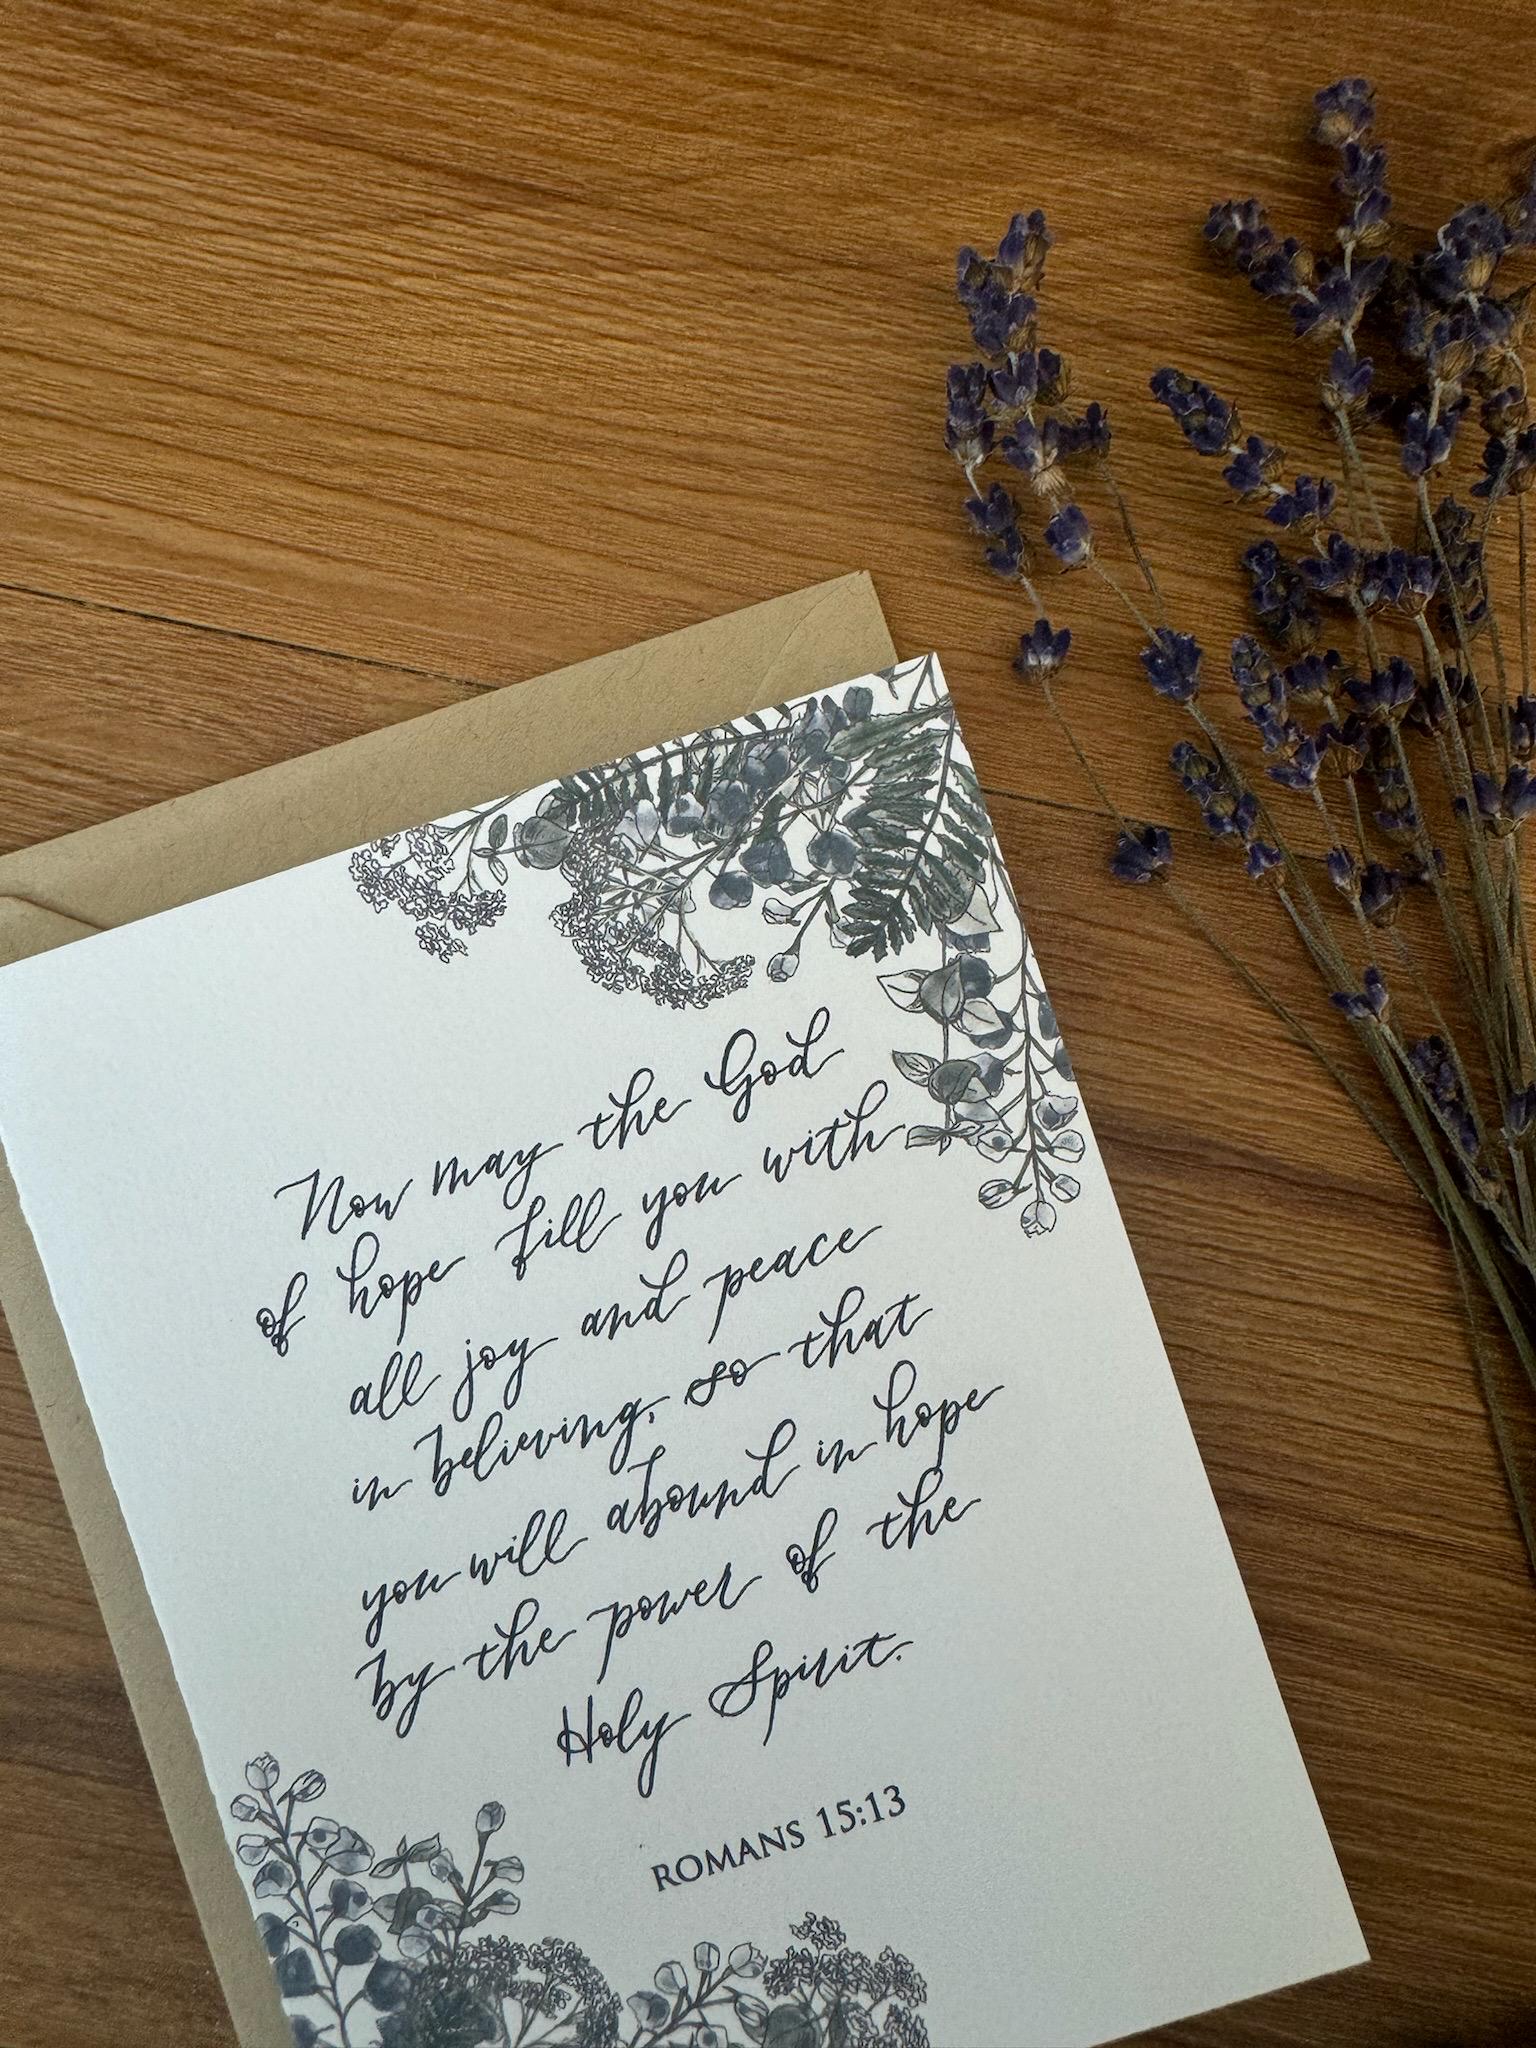 Now may the God
of hope fill you with
all joy and peace
in believing, so that
you will abound in hope
by the power of the
Holy Spirit.
ROMANS 15:13